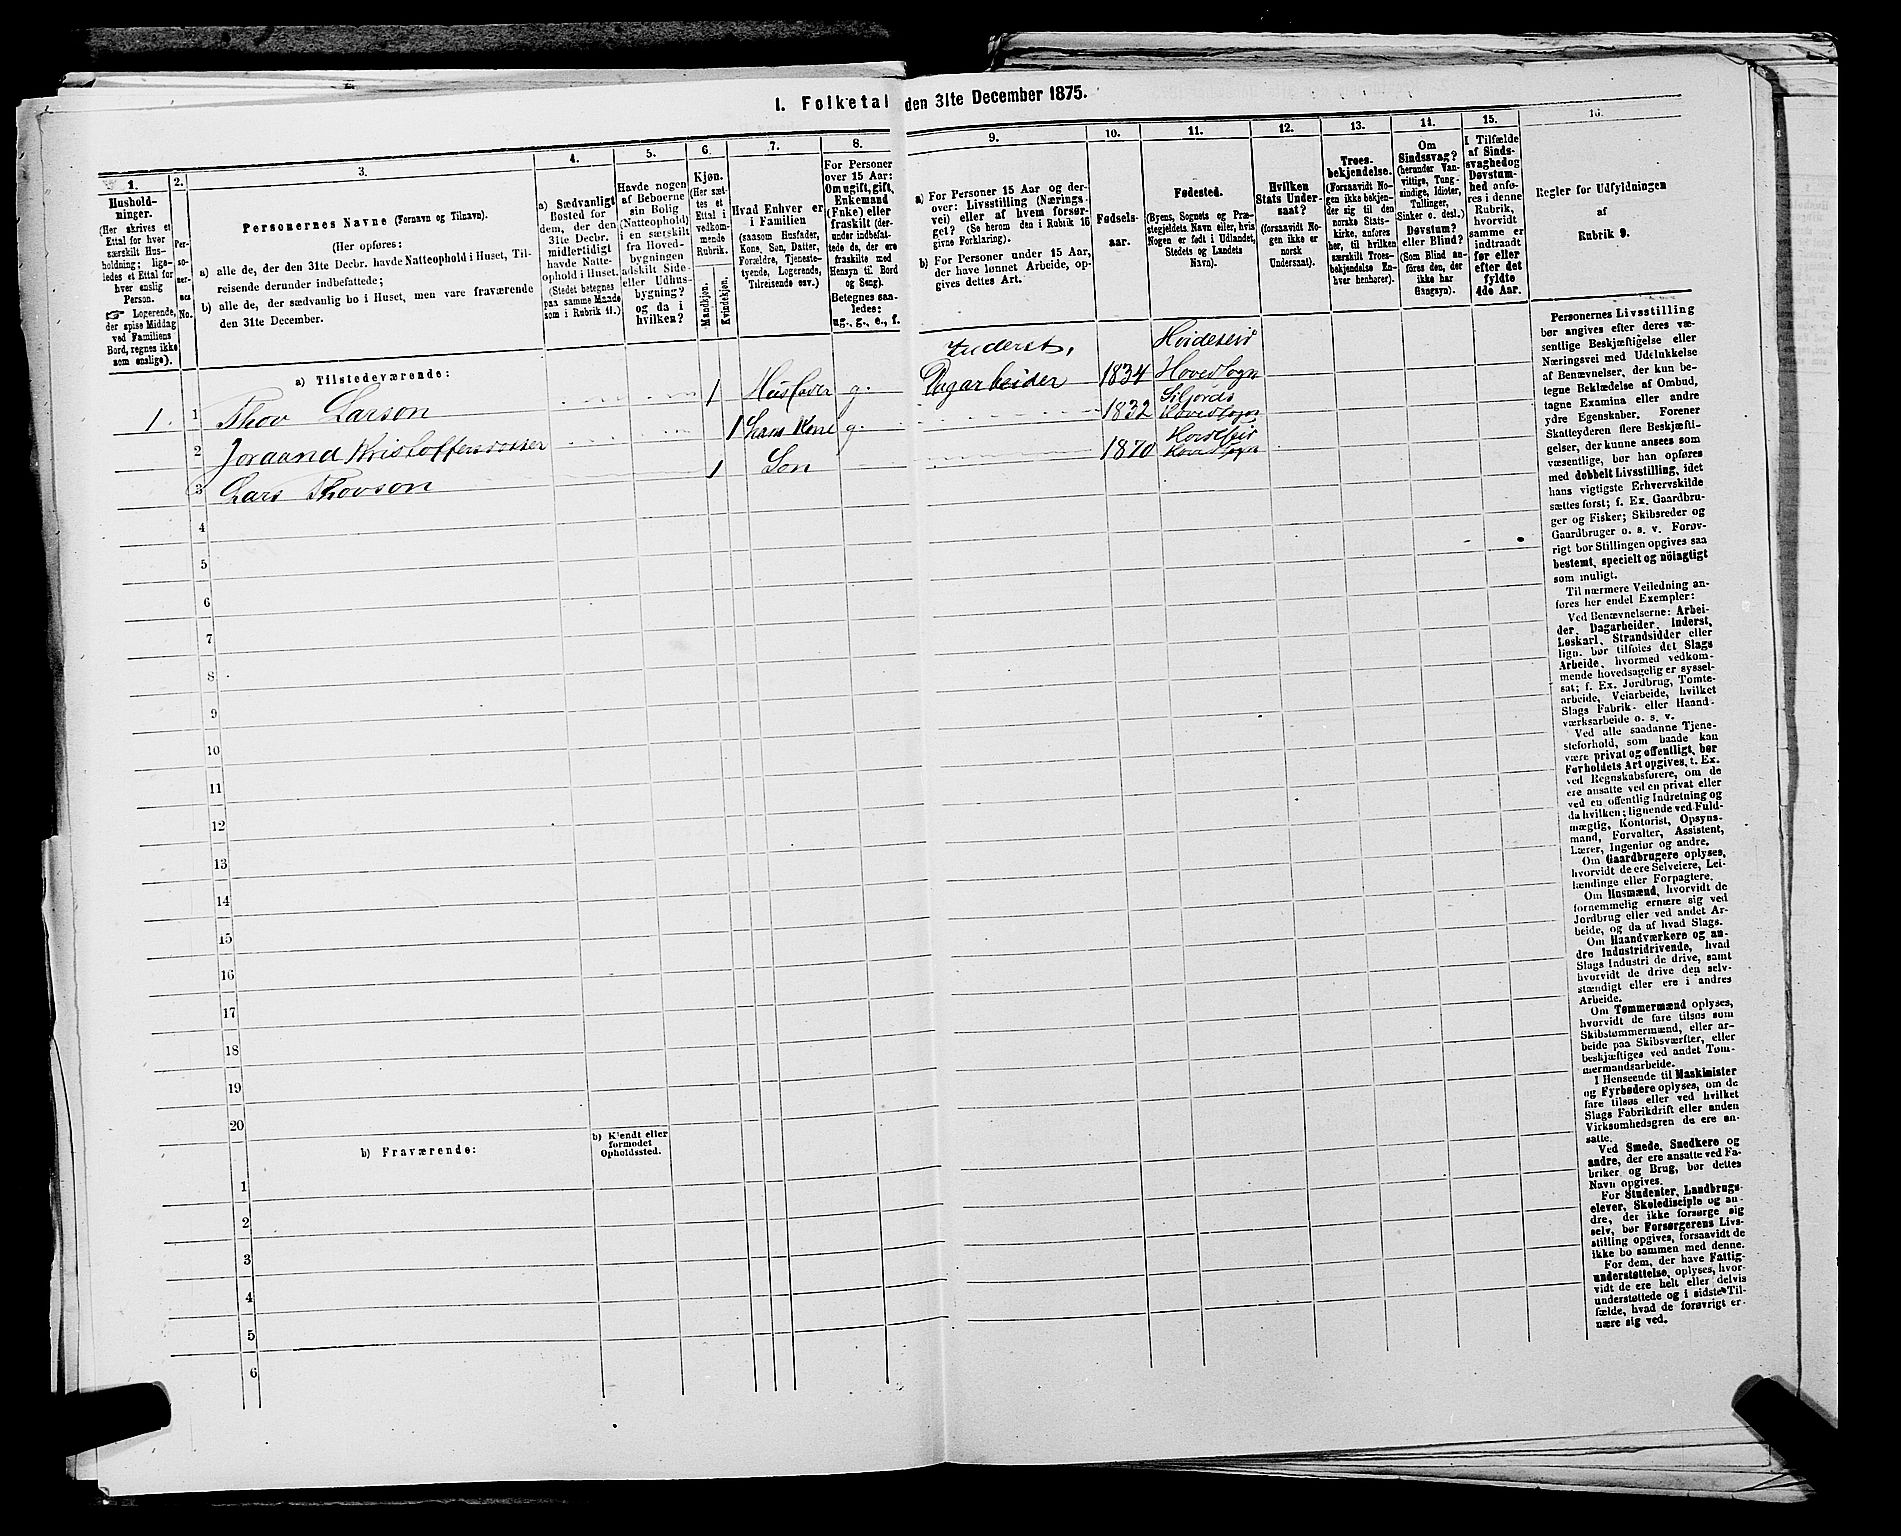 I. Folketal den 31te December 1875.
1.
2.
3.
4.
5.
6.
7.
8.
9.
10.
11.
12.
13.
14.
15.
16.
Hushold-
ninger.
(Her skrives et
Ettal for hver
særskilt Hus-
holdning; lige-
ledes et Ettal for
hver enslig
Person.
☞ Logerende,
der spise Middag
ved Familiens
Bord, regnes ikke
som enslige).
Per-
so-
ner-
nes
No.
Personernes Navne (Fornavn og Tilnavn).
(Her opføres:
a) alle de, der den 31te Decbr. havde Natteophold i Huset, Til-
reisende derunder indbefattede;
b) alle de, der sædvanlig bo i Huset, men vare fraværende
den 31te December.
a) Sædvanligt
Bosted for
dem, der den
31te Decbr.
midlertidigt
havde Natte-
ophold i Huset.
(Stedet betegnes
paa samme Maade
som i Rubrik 11.)
Havde nogen
af Beboerne
sin Bolig
(Natteophold)
i en særskilt
fra Hoved-
bygningen
adskilt Side-
eller Udhus-
bygning?
og da i
hvilken?
Kjøn.
(Her sæt-
tes et
Ettal i
vedkom-
mende
Rubrik.
Mandkjøn.
Kvindekjøn.
Hvad Enhver er
i Familien
(saasom Husfader,
Kone, Søn, Datter,
Forældre, Tjeneste-
tyende, Logerende,
Tilreisende osv.)
For Personer
over 15 Aar:
Om ugift, gift,
Enkemand
(Enke) eller
fraskilt (der-
under indbefat-
tede de, der ere
fraskilte med
Hensyn til Bord
og Seng).
Betegnes saa-
ledes:
ug., g., e., f.
a) For Personer 15 Aar og der-
over: Livsstilling (Nærings-
vei) eller af hvem forsør-
get? (Se herom den i Rubrik 16
givne Forklaring).
b) For Personer under 15 Aar,
der have lønnet Arbeide, op-
gives dettes Art.
Fødsels-
aar.
Fødested.
(Byens, Sognets og Præ-
stegjeldets Navn eller, hvis
Nogen er født i Udlandet,
Stedets og Landets
Navn).
Hvilken
Stats Under-
saat?
(forsaavidt No-
gen ikke er
norsk
Undersaat).
Troes-
bekjendelse.
(Forsaavidt No-
gen ikke bekjen-
der sig til den
norske Stats-
kirke, anføres
her, til hvilken
særskilt Troes-
bekjendelse En-
hver henhører).
Om
Sindssvag?
(herunder Van-
vittige, Tung-
sindige, Idioter,
Tullinger,
Sinker o. desl.)
Døvstum?
eller Blind?
(Som Blind an-
føres den, der
ikke har
Gangsyn).
I Tilfælde
af Sinds-
svaghed og
Døvstum-
hed anfø-
res i denne
Rubrik,
hvorvidt
samme er
indtraadt
før eller
efter det
fyldte
4de Aar.
Regler for Udfyldningen
af
Rubrik 9.
a) Tilstedeværende:
Inderst,
Hvideseid
1. 1 Thov Larson 1 Husfader g. Dagarbeider 1834 Hovedsogn
Siljords
2 Joraand Kristoffersdatter 1 hans Kone g. 1832 Hovedsogn
3 Lars Thovson 1 Søn 1870 Hovedsogn
4
5
6
7
8
9
10
11
12
13
14
15
16
17
18
19
20
b) Fraværende:
b) Kjendt eller
formodet
Opholdssted.
1
2
3
4
5
6
Personernes Livsstilling
bør angives efter deres væ-
sentlige Beskjæftigelse eller
Næringsvei med Udelukkelse
af Benævnelser, der kun be-
tegne Beklædelse af Ombud,
tagne Examina eller andre
ydre Egenskaber. Forener
Skatteyderen flere Beskjæfti-
gelser, der kunne ansees som
væsentlige, bør han opføres
med dobbelt Livsstilling, idet
hans vigtigste Erhvervskilde
sættes først; f. Ex. Gaardbru-
ger og Fisker; Skibsreder og
Gaardbruger o. s. v. Forøv-
rigt bør Stillingen opgives saa
bestemt, specielt og nöiagtigt
som muligt.
Til nærmere Veiledning an-
føres her endel Exempler:
Ved Benævnelserne: Arbei-
der, Dagarbeider, Inderst,
Løskarl, Strandsidder eller
lign. bør tilføies det Slags
Arbeide, hvormed vedkom-
mende hovedsagelig er syssel-
sat; f. Ex. Jordbrug, Tomte-
arbeide, Veiarbeide, hvilket
Slags Fabrik- eller Haand-
værksarbeide o. s. v.
Ved alle saadanne Tjene-
steforhold, som baade kan
være privat og offentligt, bør
Forholdets Art opgives, f. Ex.
ved Regnskabsførere, om de
ere ansatte ved en privat eller
ved en offentlig Indretning og
da hvilken; lignende ved Fuld-
mægtig, Kontorist, Opsyns-
mand, Forvalter, Assistent,
Lærer, Ingeniør og andre.
Om Gaardbrugere oplyses,
hvorvidt de ere Selveiere, Lei-
lændinge eller Forpagtere.
Om Husmænd, hvorvidt de
fornemmelig ernære sig ved
Jordbrug eller ved andet Ar-
beide, og da af hvad Slags.
Om Haandværkere og an-
dre Industridrivende, hvad
Slags Industri de drive, samt
hvorvidt de drive den selv-
stændigt eller ere i andres
Arbeide.
Om Tømmermænd oplyses,
hvorvidt de fare tilsøs som
Skibstømmermænd, eller ar-
beide paa Skibsværfter, eller
beskjæftiges ved andet Tøm-
mermandsarbeide.
I Henseende til Maskinister
og Fyrbødere oplyses, om de
fare tilsøs eller ved hvilket
Slags Fabrikdrift eller anden
Virksomhedsgren de ere an-
satte.
Ved Smede, Snedkere og
andre, der ere ansatte ved Fa-
briker og Brug, bør dettes
Navn opgives.
For Studenter, Landbrugs-
elever, Skoledisciple og an-
dre, der ikke forsørge sig
selv, bør Forsørgerens Livs-
stilling opgives, forsaavidt de
ikke bo sammen med denne.
For dem, der have Fattig-
understøttelse, oplyses, hvor-
vidt de ere helt eller delvis
understøttede og i sidste Til-
fælde, hvad de forøvrigt er-
nære sig ved.